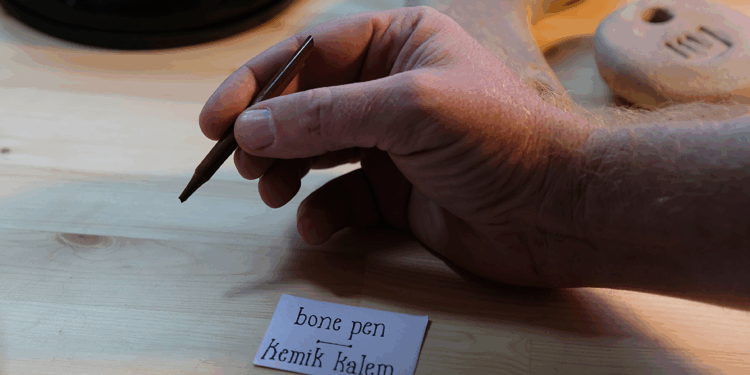 bone pen
Kemik Kalem